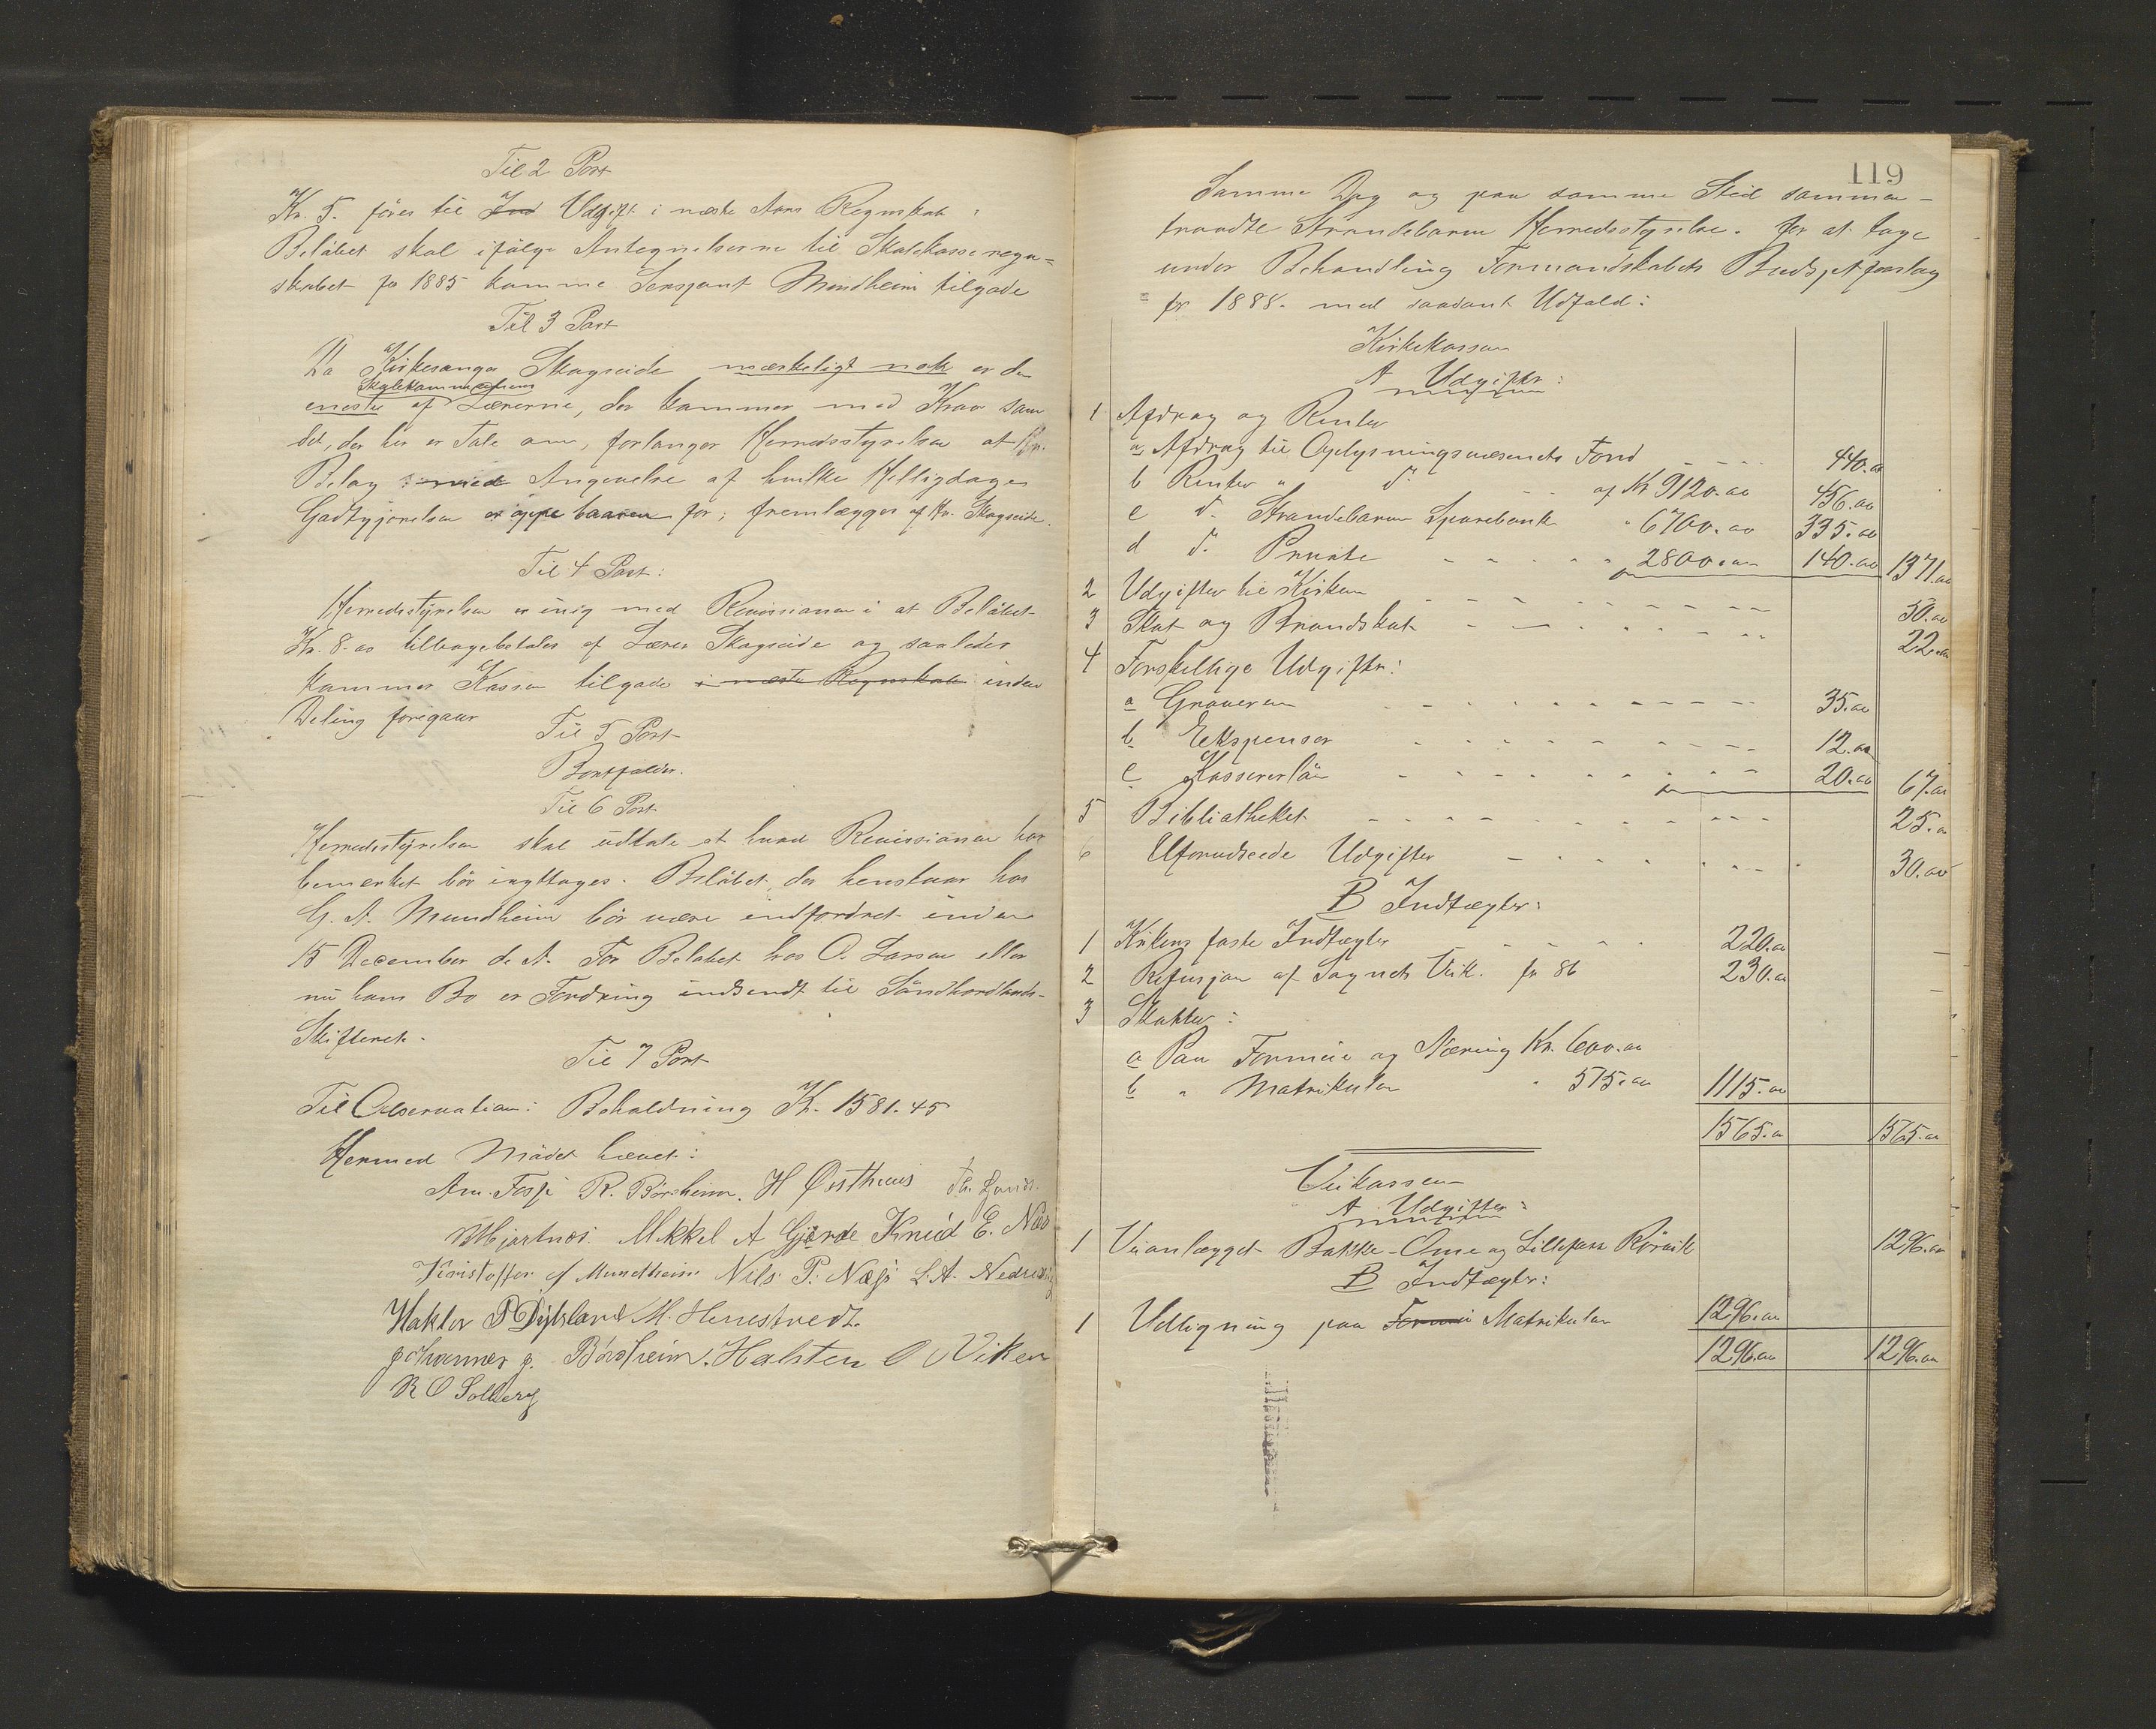 Til 2 Post
Kr. 5. föres til Ind Udgift i næste Aars Regnskab.
Belöbet skal ifölge Antegnelserne til Skolekasseregn-
skabet for 1885 komme Sersjant Mundheim tilgode
Til 3 Post
Da Kirkesanger Skogseide mærkeligt nok er den
Skolekommunens
eneste af Lærerne, der kommer med Krav som
det, der her er Tale om, forlanger Herredsstyrelsen at
Belæg med Angivelse af hvilke Helligdage
Godtgjørelsen er oppebaaren for, fremlægges af Hr. Skogseide.
Til 4 Post:
Herredsstyrelsen er enig med Revisionen i at Belöbet
Kr. 8.00 tilbagebetales af Lærer Skogseide og saaledes
kommer Kassen tilgode i næste Regnskab inden
Deling foregaar
Til 5 Post
Bortfalder.
Til 6 Post
Herredsstyrelsen skal udtale at hvad Revisionen har
bemærket bör iagttages. Belöbet, der henstaar hos
G. A. Mundheim bör være indfordret inden
15 December d. A. For Belöbet hos O. Larsen eller
nu hans Bo er Fordring indsendt til Söndhordlands-
Skifteret.
Til 7 Post
Til Observation: Beholdning Kr. 1581.45
Hermed Mödet hævet:
Am. Fosse R. Börsheim. H Østhuus
Hjartnes. Mikkel A Gjerde Knud E. Næs
Kristoffer Mundheim Nils P. Næss L. A. Nedrevaag
Haktor P Dybsland M. Henestvedt.
Johannes J. Börsheim. Halsten O Viken
R O Solberg
119
Samme Dag og paa samme Sted sammen-
traadte Strandebarm Herredsstyrelse. for at tage
under Behandling Formandskabets Budsjetforslag
for 1888. med saadant Udfald:
Kirkekassen
A Udgifter:
1 Afdrag og Renter
a Afdrag til Oplysningsvæsenets Fond 440.00
b Renter " d. af Kr 9120.00 456.00
c d. Strandebarm Sparebank " 6700.00 335.00
d d. Private " 2800.00 140.00 1371.00
2 Udgifter til Kirken 50.00
3 Skat og Brandskat 22.00
4 Forskellige Udgifter:
a Graveren 35.00
b Ekspenser 12.00
c Kassererlön 20.00 67.00
5 Bibliotheket 25.00
6 Uforudseede Udgifter 30.00
B Indtægter:
1 Kirkens faste Indtægter 220.00
2 Refusjon af Sognets Veik. for 86 230.00
3 Skatter:
a Paa Formue og Næring Kr. 600.00
b " Matrikulen " 515.00 1115.00
1565.00 1565.00
Veikassen
A Udgifter:
1 Veianlægget Bakke-Ome og Rörvik 1296.00
B Indtægter:
1 Udligning paa Formue Matrikulen 1296.00
1296.00 1296.00